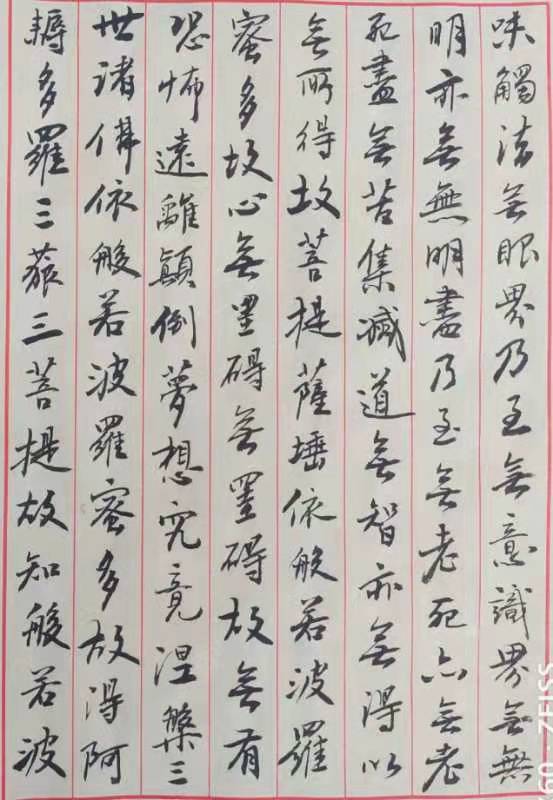 味觸法無眼界乃至無意識界無無
明亦無無明盡乃至無老死亦無老
死盡無苦集滅道無智亦無得以
無所得故菩提薩埵依般若波羅
蜜多故心無罣碍無罣碍故無有
恐怖遠離顛倒夢想究竟涅槃三
世諸佛依般若波羅蜜多故得阿
耨多羅三藐三菩提故知般若波
60 ZEISS